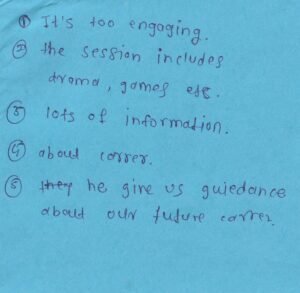 ① It's too engaging.
② the session includes
drama, games etc.
③ lots of information.
④ about correr.
⑤ they he give us guiedance
about our future correr.